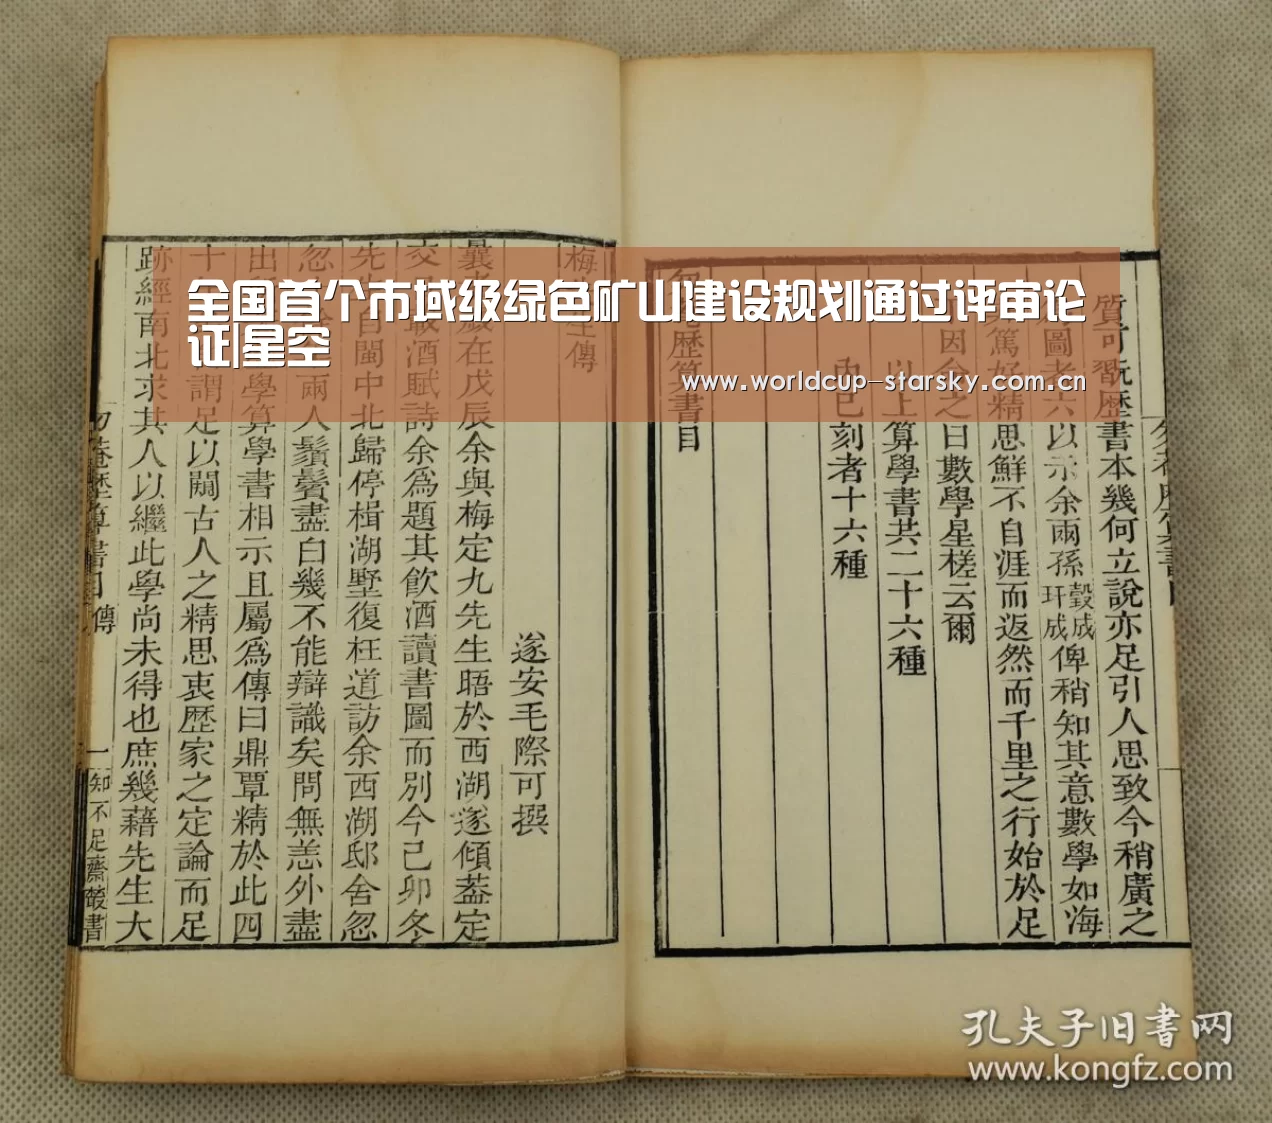 全国首个市域级绿色矿山建设规划通过评审论
证|星空
www.worldcup-starsky.com.cn
質可歴書本幾何立說亦足引人思致今稍廣之
圖者六以示余兩孫瑴成玕成俾稍知其意數學如海
篤好精思鮮不自涯而返然而千里之行始於足
因命之曰數學星槎云爾
以上算學書共二十六種
内已刻者十六種
勿菴歴算書目
梅先生傳
遂安毛際可撰
曩者歲在戊辰余與梅定九先生晤於西湖遂傾葢定
交日載酒賦詩余爲題其飲酒讀書圖而別今己卯冬
先生自閩中北歸停楫湖墅復枉道訪余西湖邸舍忽
忽兩人鬚鬢盡白幾不能辯識矣問無恙外盡
出學算學書相示且屬爲傳曰鼎覃精於此四
十謂足以闢古人之精思衷歴家之定論而足
跡經南北求其人以繼此學尚未得也庶幾藉先生大
勿菴歴算書目 傳 一 知不足齋叢書
孔夫子旧書网
www.kongfz.com